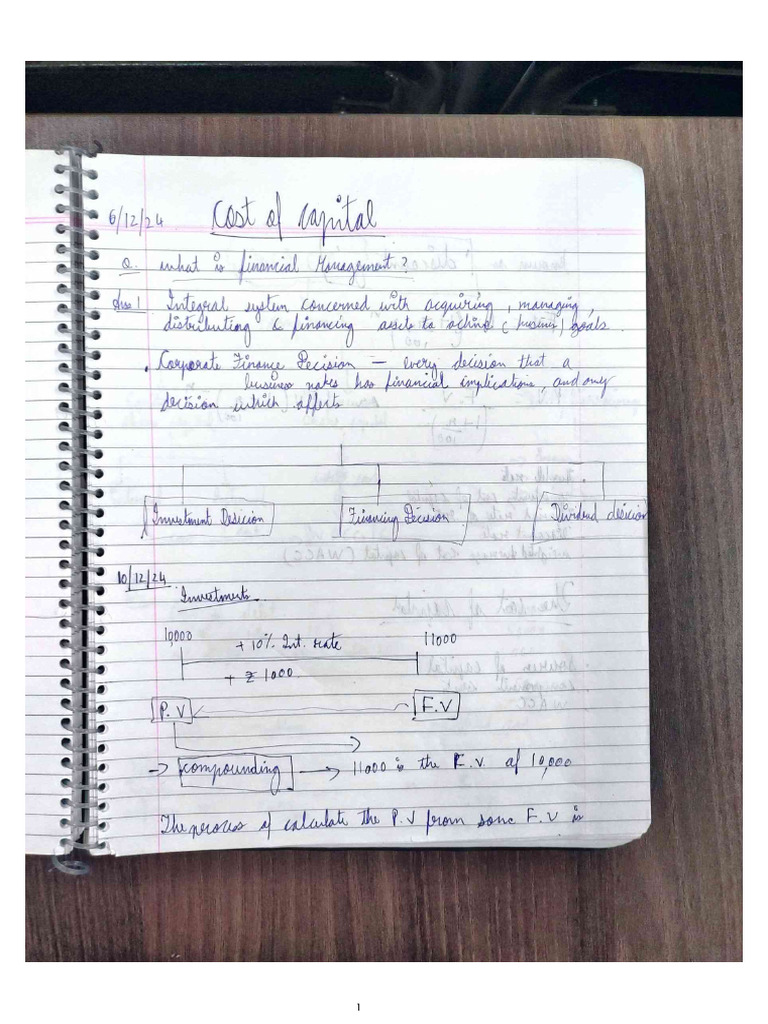 6/12/24 Cost of Capital
Q. what is financial Management?
Ans 1 Integral system concerned with acquiring, managing,
distributing & financing assets to achive (business) goals.
• Corporate Finance Decision – every decision that a
business makes has financial implications, and any
decision which affects
Investment Desicion Financing Decision Dividend desicion
10/12/24
Investments
10,000 + 10% Int. rate 11000
+ ₹ 1000
P.V F.V
→ compounding → 11000 is the F.V. of 10,000
The process of calculate the P.V from some F.V is
1